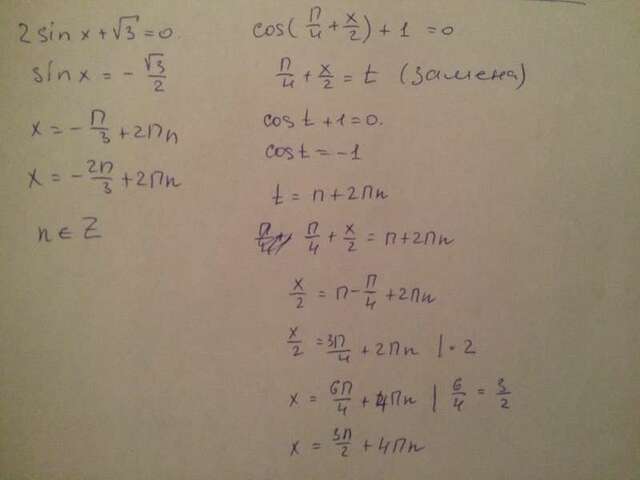 2 sin x + √3 = 0.
sin x = - √3/2
x = - π/3 + 2πn
x = - 2π/3 + 2πn
n ∈ Z
cos(π/4 + x/2) + 1 = 0
π/4 + x/2 = t (замена)
cos t + 1 = 0.
cos t = -1
t = π + 2πn
π/4 + x/2 = π + 2πn
x/2 = π - π/4 + 2πn
x/2 = 3π/4 + 2πn | · 2
x = 6π/4 + 4πn | 6/4 = 3/2
x = 3π/2 + 4πn